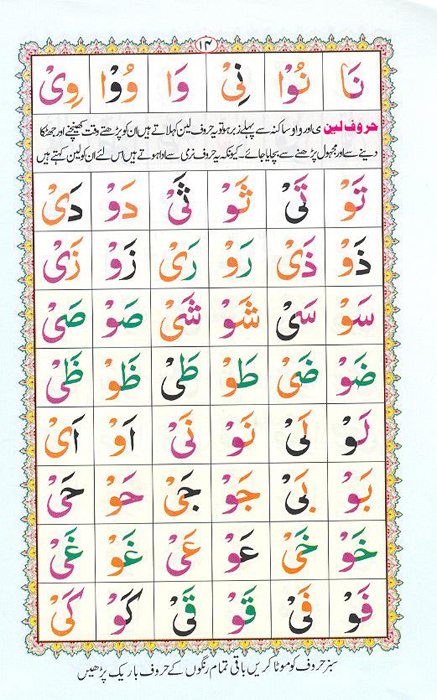 ۱۴
نَا نُوْا نِیْ وَا وُوْا وِیْ
حروف لین ی اور واؤ ساکنہ سے پہلے زبر ہو تو یہ حروف لین کہلاتے ہیں ان کو پڑھتے وقت کھینچنے اور جھٹکا
دینے سے اور مجہول پڑھنے سے بچایا جائے۔ کیونکہ یہ حروف نرمی سے ادا ہوتے ہیں اس لئے ان کو لین کہتے ہیں
تَوْ تَیْ ثَوْ ثَیْ دَوْ دَیْ
ذَوْ ذَیْ رَوْ رَیْ زَوْ زَیْ
سَوْ سَیْ شَوْ شَیْ صَوْ صَیْ
ضَوْ ضَیْ طَوْ طَیْ ظَوْ ظَیْ
لَوْ لَیْ نَوْ نَیْ اَوْ اَیْ
بَوْ بَیْ جَوْ جَیْ حَوْ حَیْ
خَوْ خَیْ عَوْ عَیْ غَوْ غَیْ
فَوْ فَیْ قَوْ قَیْ کَوْ کَیْ
سبز حروف کو موٹا کریں باقی تمام رنگوں کے حروف باریک پڑھیں